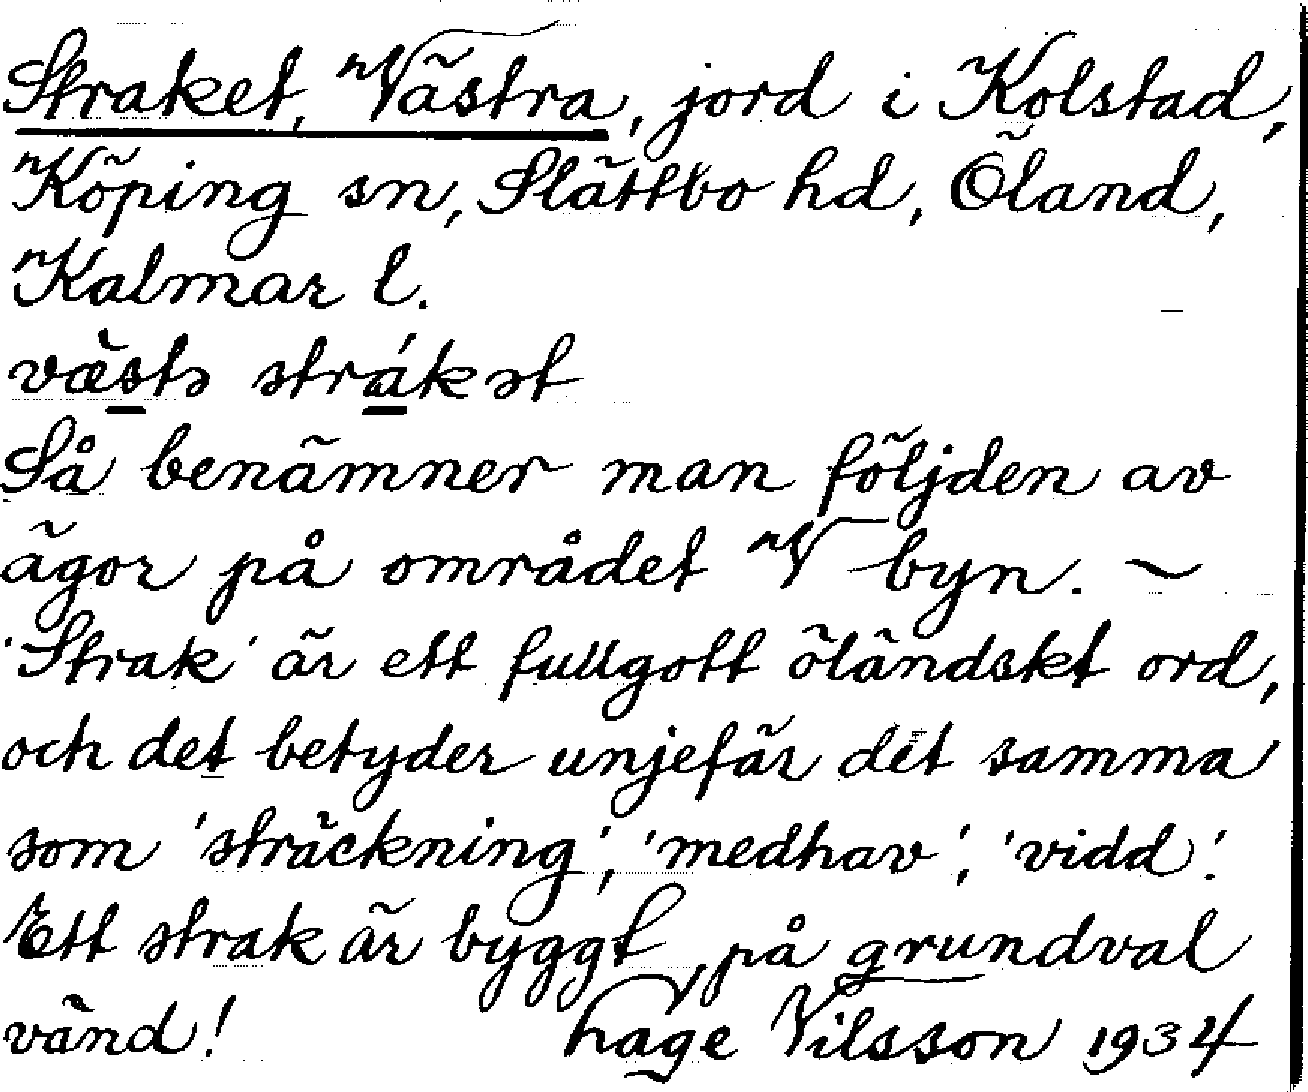 Straket, Västra, jord i Kolstad,
Köping sn, Slättbo hd, Öland,
Kalmar l.
væstə strákət
Så benämner man följden av
ägor på området V byn. ~
'Strak' är ett fullgott öländskt ord,
och det betyder unjefär det samma
som 'sträckning', 'medhav', 'vidd'.
Ett strak är byggt på grundval
vänd! hage Nilsson 1934